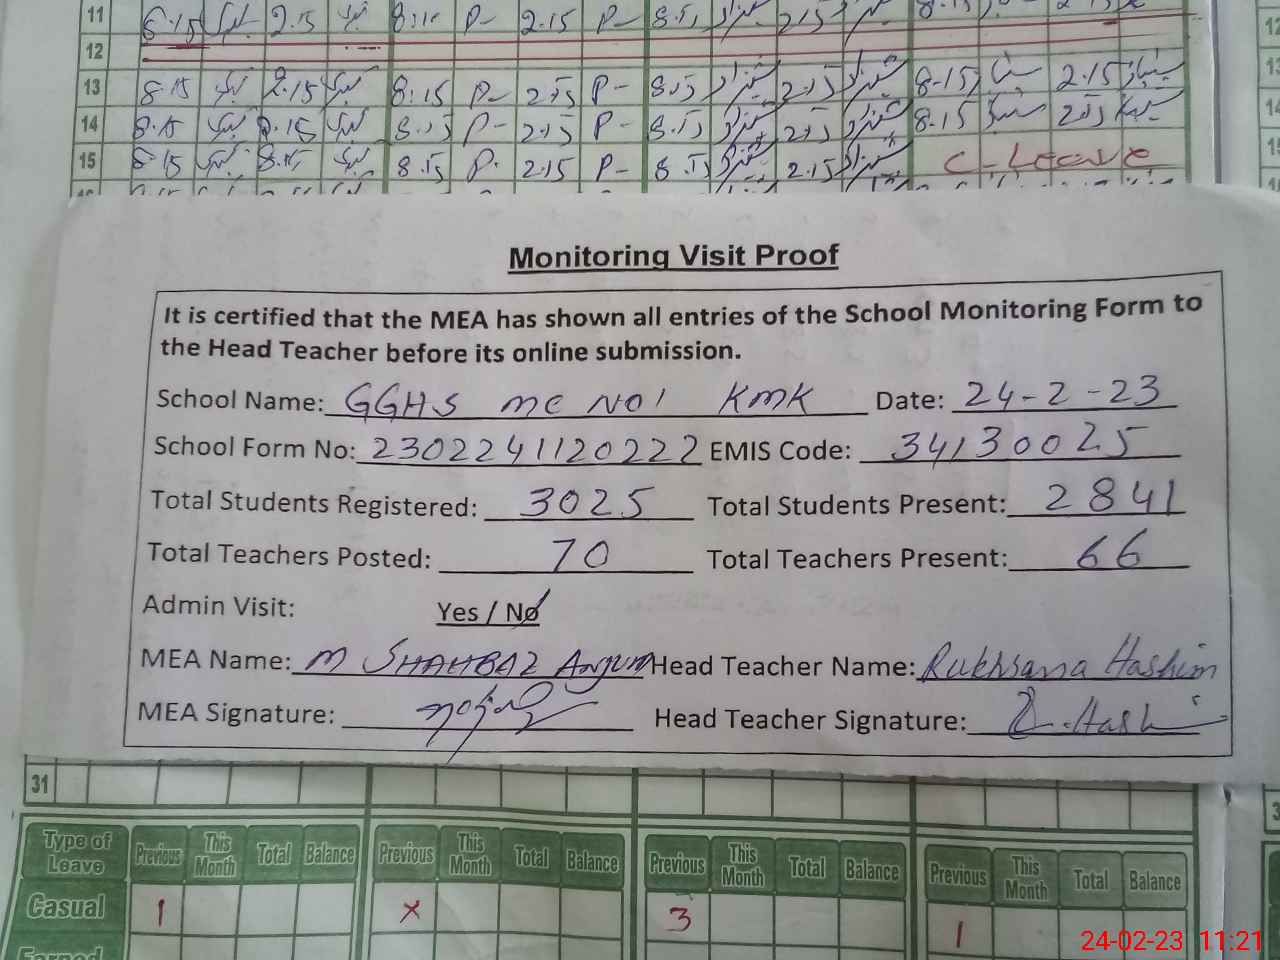 11 8.15 2.15 8.15 P- 2.15 P- 8.15 2.15 8.15 2.15
12
13 8.15 2.15 8:15 P- 2.15 P- 8.15 2.15 8-15 2.15
14 8.15 2.15 8.15 P- 2.15 P- 8.15 2.15 8.15 2.15
15 8.15 8.15 8.15 P. 2.15 P- 8.15 2.15 C-Leave
Monitoring Visit Proof
It is certified that the MEA has shown all entries of the School Monitoring Form to
the Head Teacher before its online submission.
School Name: GGHS MC NO1 KMK Date: 24-2-23
School Form No: 2302241120222 EMIS Code: 34130025
Total Students Registered: 3025 Total Students Present: 2841
Total Teachers Posted: 70 Total Teachers Present: 66
Admin Visit: Yes / No
MEA Name: M SHAHBAZ Anjum Head Teacher Name: Rukhsana Hashim
MEA Signature: Head Teacher Signature: R.Hashi
31
Type of Leave Previous This Month Total Balance Previous This Month Total Balance Previous This Month Total Balance Previous This Month Total Balance
Casual 1 × 3 1
24-02-23 11:21